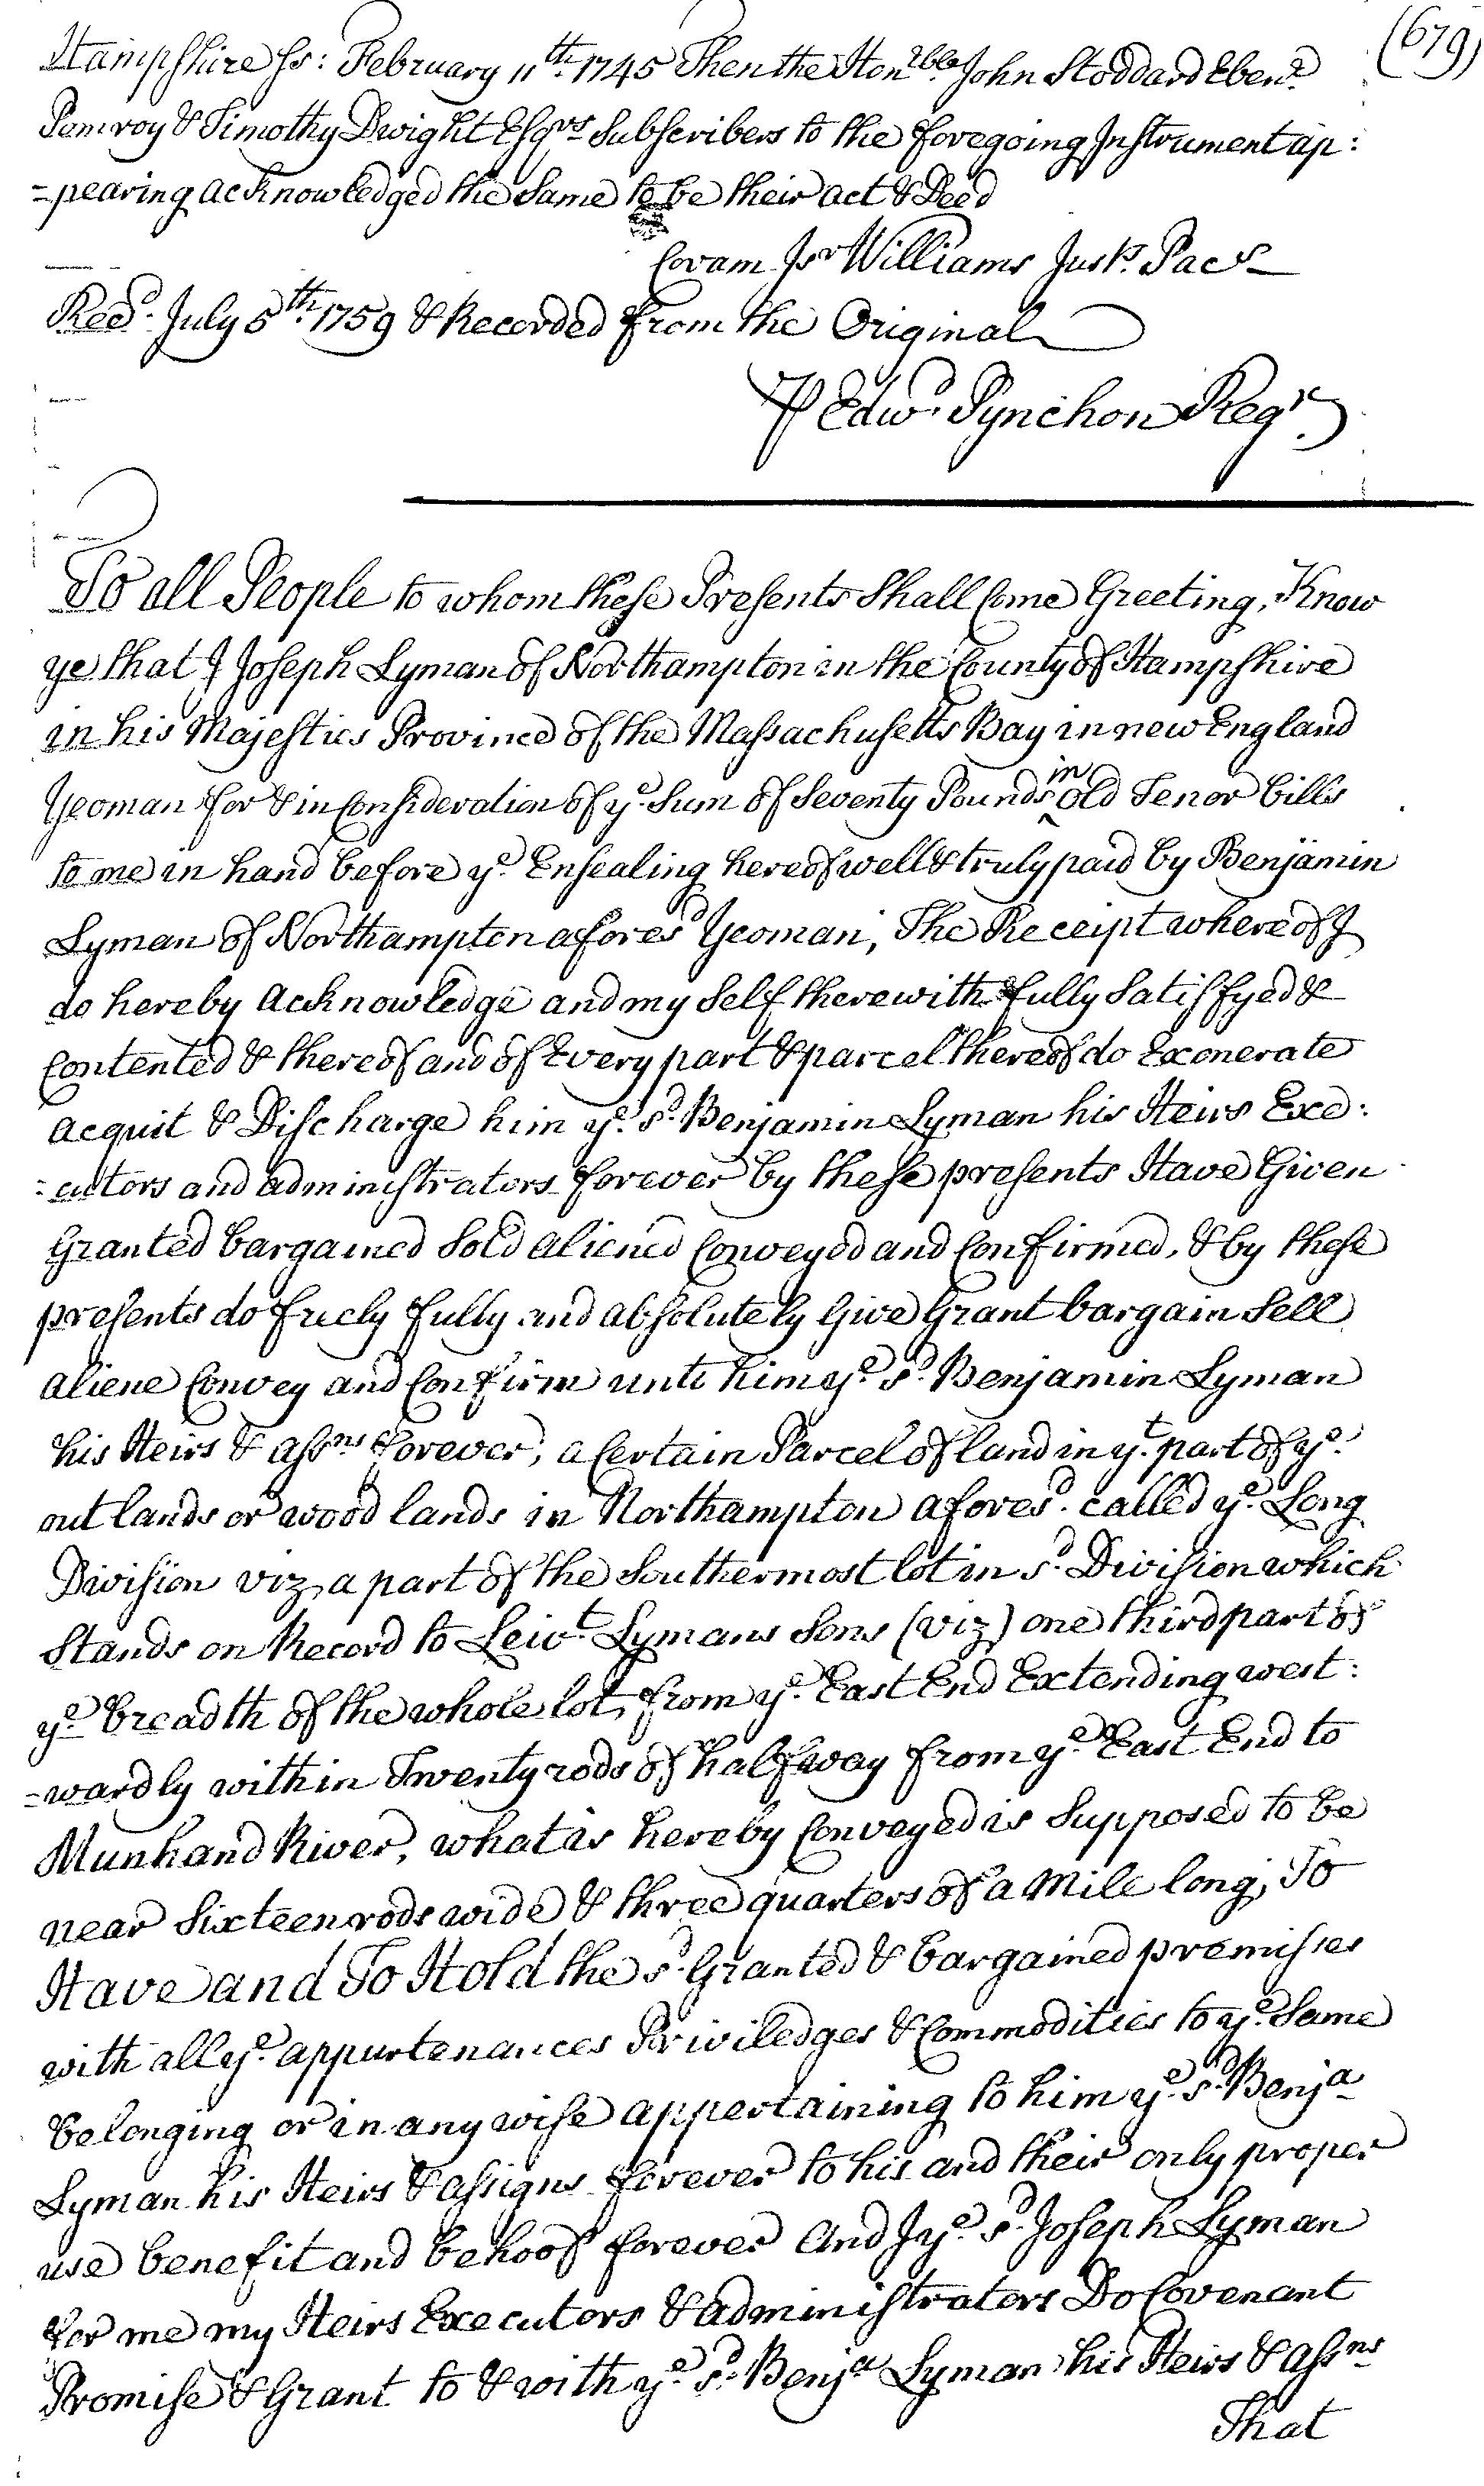 (679)
Hampshire ss: February 11th. 1745 Then the Honble. John Stoddard Ebenr.
Pomroy & Timothy Dwight Esqrs Subscribers to the foregoing Instrument ap:
=pearing acknowledged the Same to be their act & Deed
Coram Isr Williams Justs. Pacs
Recd. July 5th. 1759 & Recorded from the Original
P Edwd. Pynchon Regr.
To all People to whom these Presents Shall Come Greeting, Know
ye that I Joseph Lyman of Northampton in the County of Hampshire
in his Majesties Province of the Massachusetts Bay in new England
Yeoman for & in Consideration of ye. Sum of Seventy Pounds in old Tenor bills
to me in hand before ye. Ensealing hereof well & truly paid by Benjamin
Lyman of Northampton aforesd Yeoman, The Receipt whereof I
do hereby acknowledge and my Self therewith fully Satisfyed &
Contented & thereof and of Every part & parcel thereof do Exonerate
acquit & Discharge him ye. sd. Benjamin Lyman his Heirs Exe:
=cutors and administrators forever by these presents Have Given
Granted bargained Sold aliened Conveyed and Confirmed, & by these
presents do freely fully and absolutely Give Grant bargain Sell
aliene Convey and Confirm unto him ye. sd. Benjamin Lyman
his Heirs & assns forever, a Certain Parcel of land in yt. part of ye.
out lands or wood lands in Northampton aforesd. called ye. Long
Division viz, a part of the Southermost lot in sd. Division which
Stands on Record to Leivt. Lymans Sons (viz) one third part of
ye. breadth of the whole lot, from ye. East End Extending west:
=wardly within Twenty rods of half way from ye. East End to
Munhand River, what is hereby Conveyed is Supposed to be
near Sixteen rods wide & three quarters of a Mile long, To
Have and To Hold the sd. Granted & bargained premisses
with all ye. appurtenances Priviledges & Commodities to ye. Same
belonging or in any wise appertaining to him ye. sd. Benja
Lyman his Heirs & assigns forever to his and their only proper
use benefit and behoof forever And I ye. sd. Joseph Lyman
for me my Heirs Executors & administrators Do Covenant
Promise & Grant to & with ye. sd. Benja Lyman his Heirs & assns
That